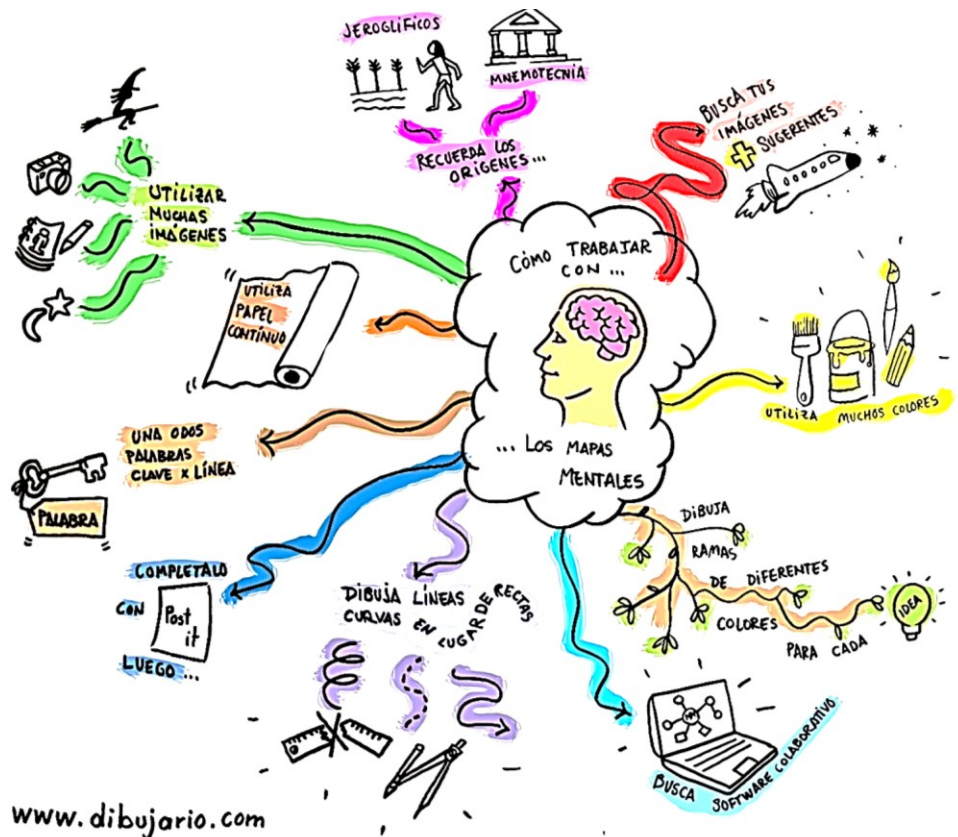 CÓMO TRABAJAR
CON ...
... LOS MAPAS
MENTALES
JEROGLÍFICOS
MNEMOTECNIA
RECUERDA LOS
ORÍGENES...
BUSCA TUS
IMÁGENES
SUGERENTES
UTILIZA MUCHOS COLORES
DIBUJA
RAMAS
DE DIFERENTES
COLORES
PARA CADA
IDEA
BUSCA SOFTWARE COLABORATIVO
DIBUJA LÍNEAS
CURVAS EN LUGAR DE RECTAS
COMPLETALO
CON
Post
it
LUEGO ...
UNA O DOS
PALABRAS
CLAVE X LÍNEA
PALABRA
UTILIZA
PAPEL
CONTÍNUO
UTILIZAR
MUCHAS
IMÁGENES
www.dibujario.com